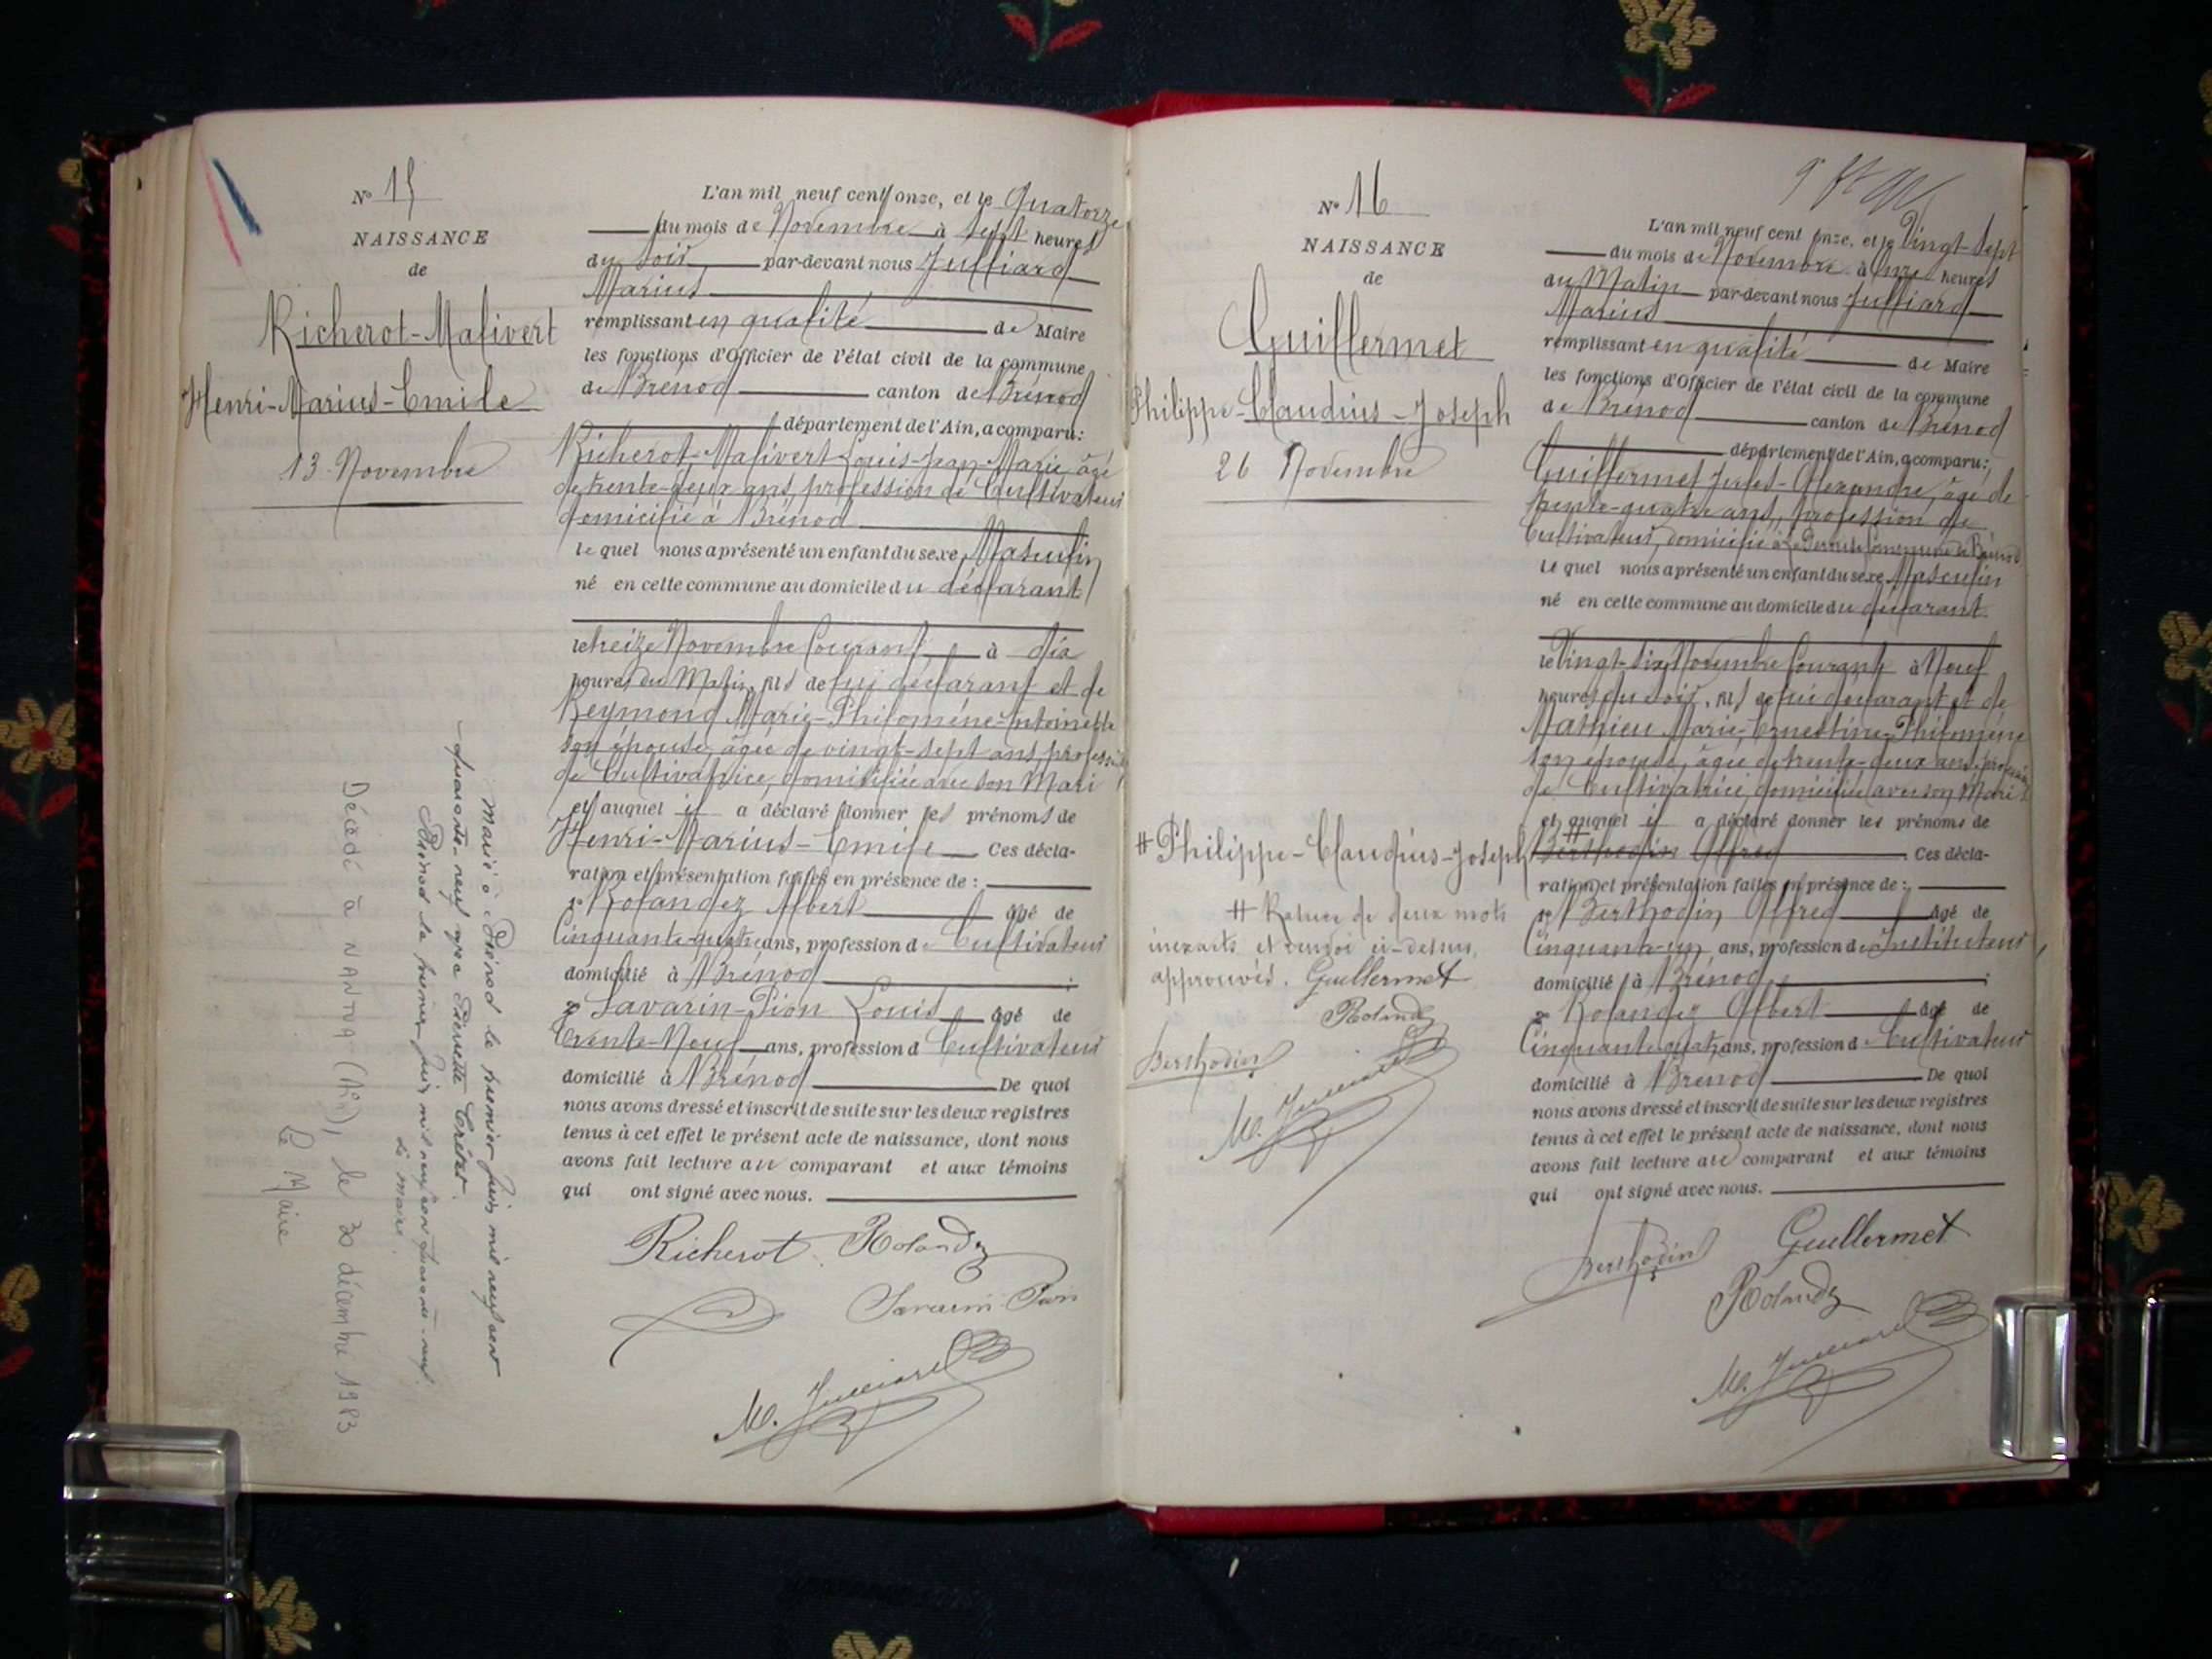 N° 15
NAISSANCE
de
Richerot-Malivert
Henri-Marius-Emile
13 Novembre
L'an mil neuf cent onze, et le Quatorze
du mois de Novembre à sept heures
du soir par-devant nous Julliard
Marius
remplissant en qualité de Maire
les fonctions d'Officier de l'état civil de la commune
de Brénod canton de Brénod
département de l'Ain, a comparu:
Richerot-Malivert Louis-Jean-Marie, âgé
de trente-deux ans, profession de Cultivateur
domicilié à Brénod
le quel nous a présenté un enfant du sexe Masculin
né en cette commune au domicile du déclarant
le treize Novembre Courant, à dix
heures du Matin, fils de lui déclarant et de
Reymond Marie-Philomène-Antoinette
son épouse, âgée de vingt-sept ans, profession
de Cultivatrice, domiciliée avec son Mari
et auquel il a déclaré donner les prénoms de
Henri-Marius-Emile Ces décla-
ration et présentation faites en présence de :
1° Rolandez Albert âgé de
Cinquante-quatre ans, profession de Cultivateur
domicilié à Brénod ;
2° Savarin-Pion Louis âgé de
Trente-Neuf ans, profession d Cultivateur
domicilié à Brénod De quoi
nous avons dressé et inscrit de suite sur les deux registres
tenus à cet effet le présent acte de naissance, dont nous
avons fait lecture au comparant et aux témoins
qui ont signé avec nous.
Richerot Rolandez
Savarin Pion
M. Julliard
Marié à Brénod le premier juin mil neuf cent
quarante-neuf avec Pierrette Crétet.
Brénod le premier juin mil neuf cent quarante-neuf.
Le maire.
Décédé à NANTUA (Ain), le 30 décembre 1983
Le Maire
N° 16
NAISSANCE
de
Guillermet
Philippe-Claudius-Joseph
26 Novembre
L'an mil neuf cent onze, et le Vingt-Sept
du mois de Novembre à Onze heures
du Matin par-devant nous Julliard
Marius
remplissant en qualité de Maire
les fonctions d'Officier de l'état civil de la commune
de Brénod canton de Brénod
département de l'Ain, a comparu:
Guillermet Jules-Alexandre, âgé de
trente-quatre ans, profession de
Cultivateur, domicilié à commune de Brénod
le quel nous a présenté un enfant du sexe Masculin
né en cette commune au domicile du déclarant
le Vingt-Six Novembre Courant à Neuf
heures du soir, fils de lui déclarant et de
Mathieu Marie-Ernestine-Philomène
son épouse, âgée de trente-deux ans, profession
de Cultivatrice, domiciliée avec son Mari
et auquel il a déclaré donner les prénoms de
# Philippe-Claudius-Joseph # Berthodin Alfred Ces décla-
ration et présentation faites en présence de :
1° Berthodin Alfred âgé de
Cinquante-un ans, profession de Instituteur,
domicilié à Brénod ;
2° Rolandez Albert âgé de
Cinquante-quatre ans, profession d Cultivateur
domicilié à Brénod De quoi
nous avons dressé et inscrit de suite sur les deux registres
tenus à cet effet le présent acte de naissance, dont nous
avons fait lecture au comparant et aux témoins
qui ont signé avec nous.
# Rature de deux mots
inexacts et renvoi ci-dessus,
approuvés. Guillermet
Rolandez
Berthodin
M. Julliard
Berthodin Guillermet
Rolandez
M. Julliard